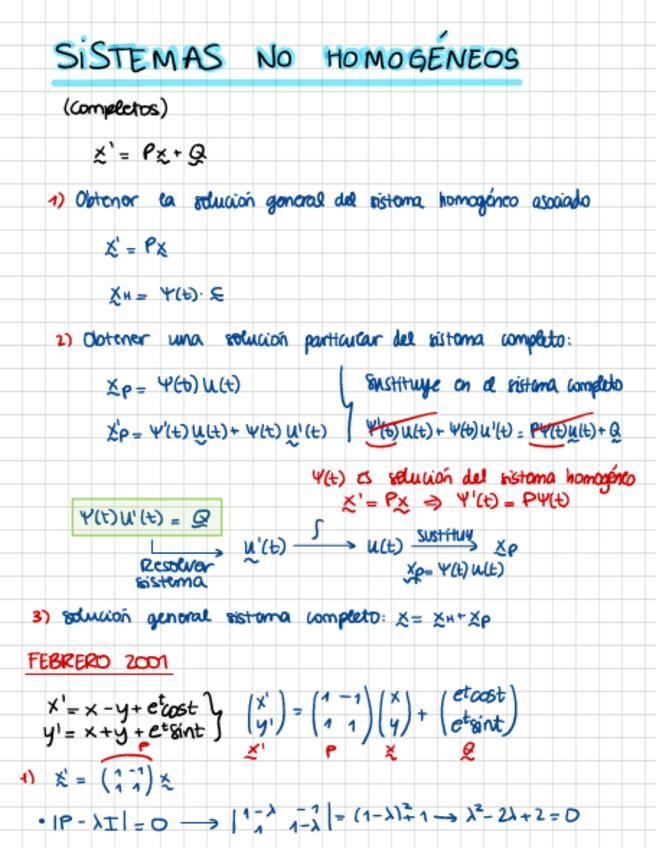 SISTEMAS NO HOMOGÉNEOS
(completos)
x' = Px + Q
1) Obtener la solución general del sistema homogéneo asociado
x' = Px
xH = Ψ(t) · c
2) Obtener una solución particular del sistema completo:
xp = Ψ(t) u(t)
Sustituye en el sistema completo
x'p = Ψ'(t) u(t) + Ψ(t) u'(t)
Ψ'(t) u(t) + Ψ(t) u'(t) = PΨ(t) u(t) + Q
Ψ(t) es solución del sistema homogéneo
x' = Px ⇒ Ψ'(t) = PΨ(t)
Ψ(t) u'(t) = Q
Resolver
sistema
u'(t) ∫→ u(t) sustituy→ xp
xp = Ψ(t) u(t)
3) solución general sistema completo: x = xH + xp
FEBRERO 2001
x' = x - y + e^t cost
y' = x + y + e^t sint
(x' y') = (1 -1 1 1) (x y) + (e^t cost e^t sint)
x' P x Q
P
1) x' = (1 -1 1 1) x
• |P - λI| = 0 → |1-λ -1 1 1-λ| = (1-λ)² + 1 → λ² - 2λ + 2 = 0